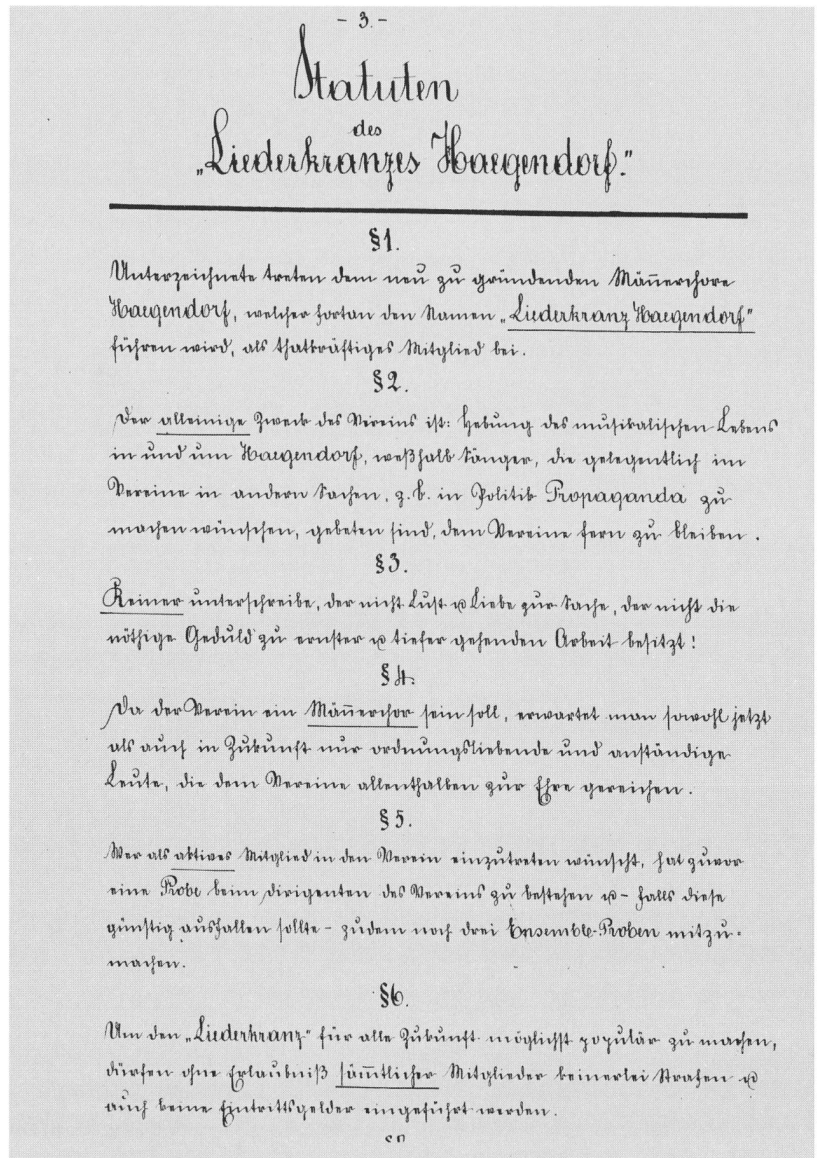 - 3. -
Statuten
des
„Liederkranzes Haegendorf."
§1.
Unterzeichnete treten dem neu zu gründenden Män̄erchore
Haegendorf, welcher fortan den Namen „Liederkranz Haegendorf"
führen wird, als thatkräftiges Mitglied bei.
§2.
Der alleinige Zweck des Vereins ist: Hebung des musikalischen Lebens
in und um Haegendorf, weßhalb Sänger, die gelegentlich im
Vereine in andern Sachen, z. B. in Politik Propaganda zu
machen wünschen, gebeten sind, dem Vereine fern zu bleiben.
§3.
Keiner unterschreibe, der nicht Lust u Liebe zur Sache, der nicht die
nöthige Geduld zu ernster u tiefer gehenden Arbeit besitzt!
§4.
Da der Verein ein Män̄erchor sein soll, erwartet man sowohl jetzt
als auch in Zukunft nur ordnungsliebende und anständige
Leute, die dem Vereine allenthalben zur Ehre gereichen.
§5.
Wer als aktives Mitglied in den Verein einzutreten wünscht, hat zuvor
eine Probe beim Dirigenten des Vereins zu bestehen u - falls diese
günstig ausfallen sollte - zudem noch drei Ensemble-Proben mitzu-
machen.
§6.
Um den „Liederkranz" für alle Zukunft möglichst populär zu machen,
dürfen ohne Erlaubniß säm̄tlicher Mitglieder keinerlei Strafen u
auch keine Eintrittsgelder eingeführt werden.